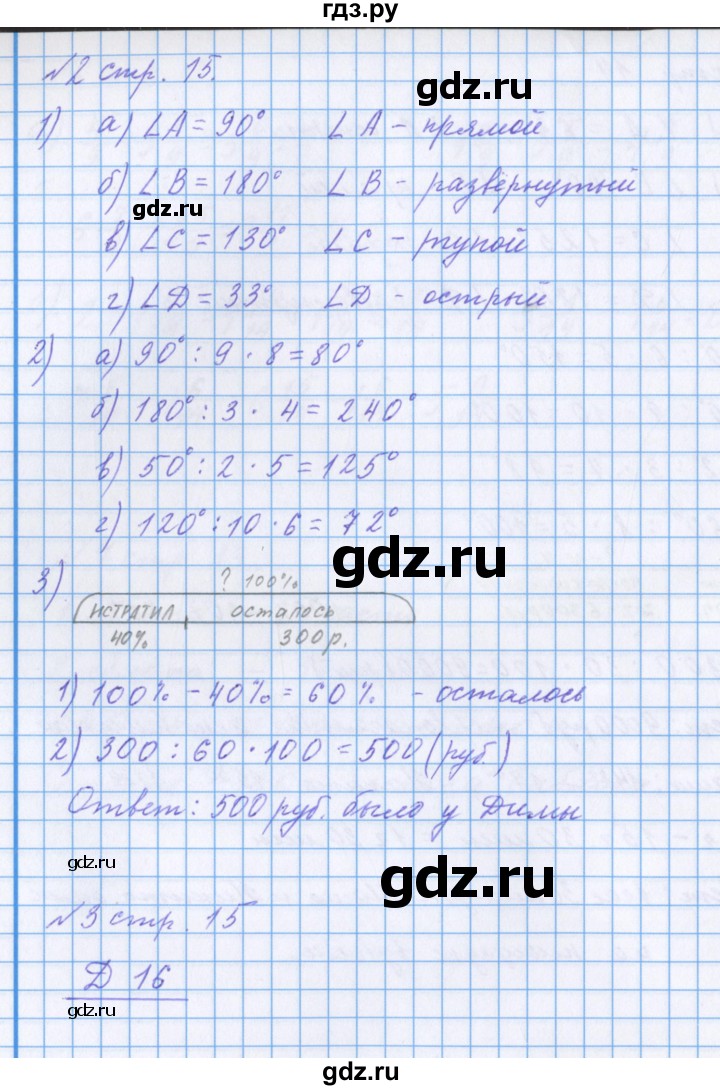 гдз.ру
№2 стр. 15.
gdz.ru
1) а) ∠A = 90° ∠A - прямой
б) ∠B = 180° ∠B - развёрнутый
gdz.ru
в) ∠C = 130° ∠C - тупой
г) ∠D = 33° ∠D - острый
2) а) 90° : 9 · 8 = 80°
б) 180° : 3 · 4 = 240°
в) 50° : 2 · 5 = 125°
г) 120° : 10 · 6 = 72°
gdz.ru
3) ? 100%
истратил осталось
40% 300 р.
1) 100% - 40% = 60% - осталось
2) 300 : 60 · 100 = 500 (руб.)
Ответ: 500 руб. было у Димы
gdz.ru
gdz.ru
№3 стр. 15
Д 16
gdz.ru
gdz.ru